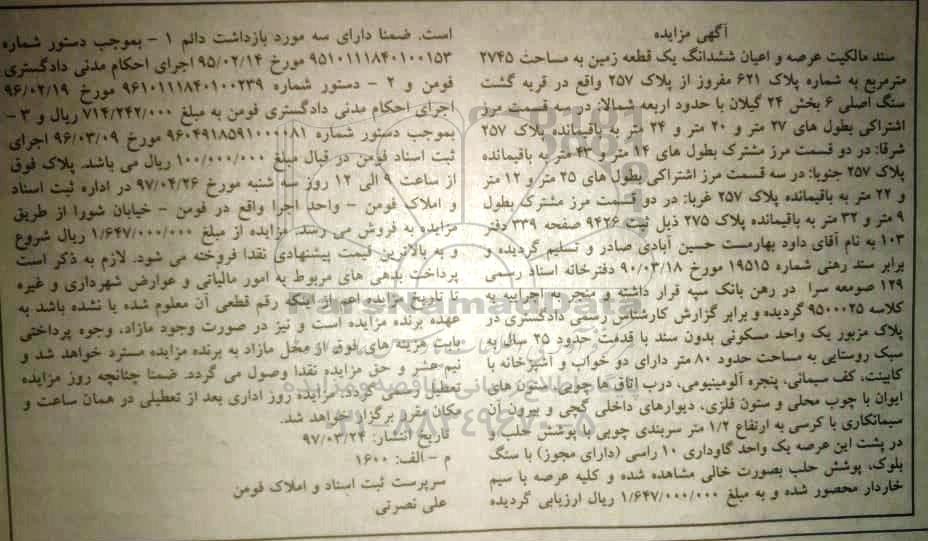 آگهی مزایده
سند مالکیت عرصه و اعیان ششدانگ یک قطعه زمین به مساحت ۲۷۴۵
مترمربع به شماره پلاک ۶۲۱ مفروز از پلاک ۲۵۷ واقع در قریه گشت
سنگ اصلی ۶ بخش ۲۴ گیلان با حدود اربعه شمالا: در سه قسمت مرز
اشتراکی بطول های ۲۷ متر و ۲۰ متر و ۲۴ متر به باقیمانده پلاک ۲۵۷
شرقا: در دو قسمت مرز مشترک بطول های ۱۴ متر و ۴۳ متر به باقیمانده
پلاک ۲۵۷ جنوبا: در سه قسمت مرز اشتراکی بطول های ۲۵ متر و ۱۲ متر
و ۲۲ متر به باقیمانده پلاک ۲۵۷ غربا: در دو قسمت مرز مشترک بطول
۹ متر و ۳۲ متر به باقیمانده پلاک ۲۷۵ ذیل ثبت ۹۴۲۶ صفحه ۳۳۹ دفتر
۱۰۳ به نام آقای داود بهارمست حسین آبادی صادر و تسلیم گردیده و
برابر سند رهنی شماره ۱۹۵۱۵ مورخ ۹۰/۰۳/۱۸ دفترخانه اسناد رسمی
۱۲۹ صومعه سرا در رهن بانک سپه قرار داشته و منجر به اجراییه به
کلاسه ۹۵۰۰۰۲۵ گردیده و برابر گزارش کارشناس رسمی دادگستری در
پلاک مزبور یک واحد مسکونی بدون سند با قدمت حدود ۳۵ سال به
سبک روستایی به مساحت حدود ۸۰ متر دارای دو خواب و آشپزخانه با
کابینت، کف سیمانی، پنجره آلومینیومی، درب اتاق ها چوبی، ستون های
ایوان با چوب محلی و ستون فلزی، دیوارهای داخلی گچی و بیرون آن
سیمانکاری با کرسی به ارتفاع ۱/۲ متر سربندی چوبی با پوشش حلب و
در پشت این عرصه یک واحد گاوداری ۱۰ راسی (دارای مجوز) با سنگ
بلوک، پوشش حلب بصورت خالی مشاهده شده و کلیه عرصه با سیم
خاردار محصور شده و به مبلغ ۱/۶۴۷/۰۰۰/۰۰۰ ریال ارزیابی گردیده
است. ضمنا دارای سه مورد بازداشت دائم ۱ - بموجب دستور شماره
۹۵۱۰۱۱۱۸۴۰۱۰۰۱۵۳ مورخ ۹۵/۰۲/۱۴ اجرای احکام مدنی دادگستری
فومن و ۲ - دستور شماره ۹۶۱۰۱۱۱۸۴۰۱۰۰۲۳۹ مورخ ۹۶/۰۲/۱۹
اجرای احکام مدنی دادگستری فومن به مبلغ ۷۱۴/۲۴۲/۰۰۰ ریال و ۳ -
بموجب دستور شماره ۹۶۰۴۹۱۸۵۹۱۰۰۰۰۸۱ مورخ ۹۶/۰۳/۰۹ اجرای
ثبت اسناد فومن در قبال مبلغ ۱۰۰/۰۰۰/۰۰۰ ریال می باشد. پلاک فوق
از ساعت ۹ الی ۱۲ روز سه شنبه مورخ ۹۷/۰۴/۲۶ در اداره ثبت اسناد
و املاک فومن - واحد اجرا واقع در فومن - خیابان شورا از طریق
مزایده به فروش می رسد. مزایده از مبلغ ۱/۶۴۷/۰۰۰/۰۰۰ ریال شروع
و به بالاترین قیمت پیشنهادی نقدا فروخته می شود. لازم به ذکر است
پرداخت بدهی های مربوط به امور مالیاتی و عوارض شهرداری و غیره
تا تاریخ مزایده اعم از اینکه رقم قطعی آن معلوم شده یا نشده باشد به
عهده برنده مزایده است و نیز در صورت وجود مازاد، وجوه پرداختی
بابت هزینه های فوق از محل مازاد به برنده مزایده مسترد خواهد شد و
نیم عشر و حق مزایده نقدا وصول می گردد. ضمنا چنانچه روز مزایده
تعطیل رسمی گردد، مزایده روز اداری بعد از تعطیلی در همان ساعت و
مکان مقرر برگزار خواهد شد.
تاریخ انتشار: ۹۷/۰۳/۲۴
م - الف: ۱۶۰۰
سرپرست ثبت اسناد و املاک فومن
علی نصرتی
ParsNamadData
پایگاه اطلاع رسانی مناقصه و مزایده
۰۲۱-۸۸۳۴۹۶۷۰-۵